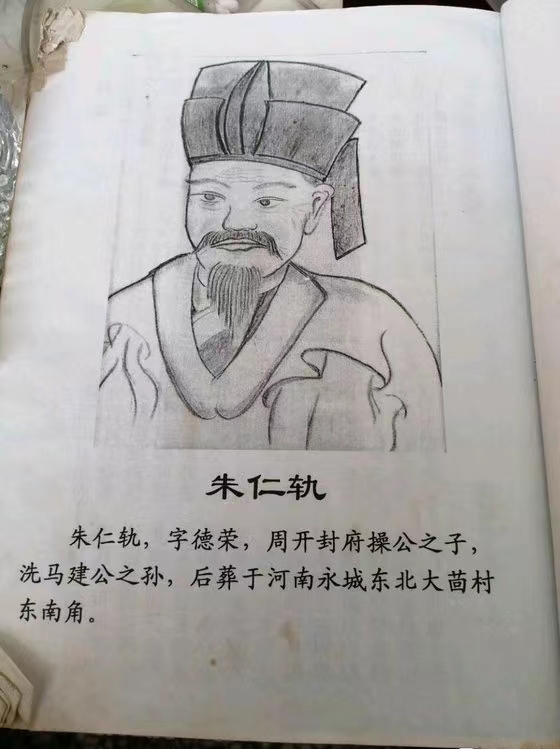 朱仁轨
朱仁轨，字德荣，周开封府操公之子，
洗马建公之孙，后葬于河南永城东北大茴村
东南角。